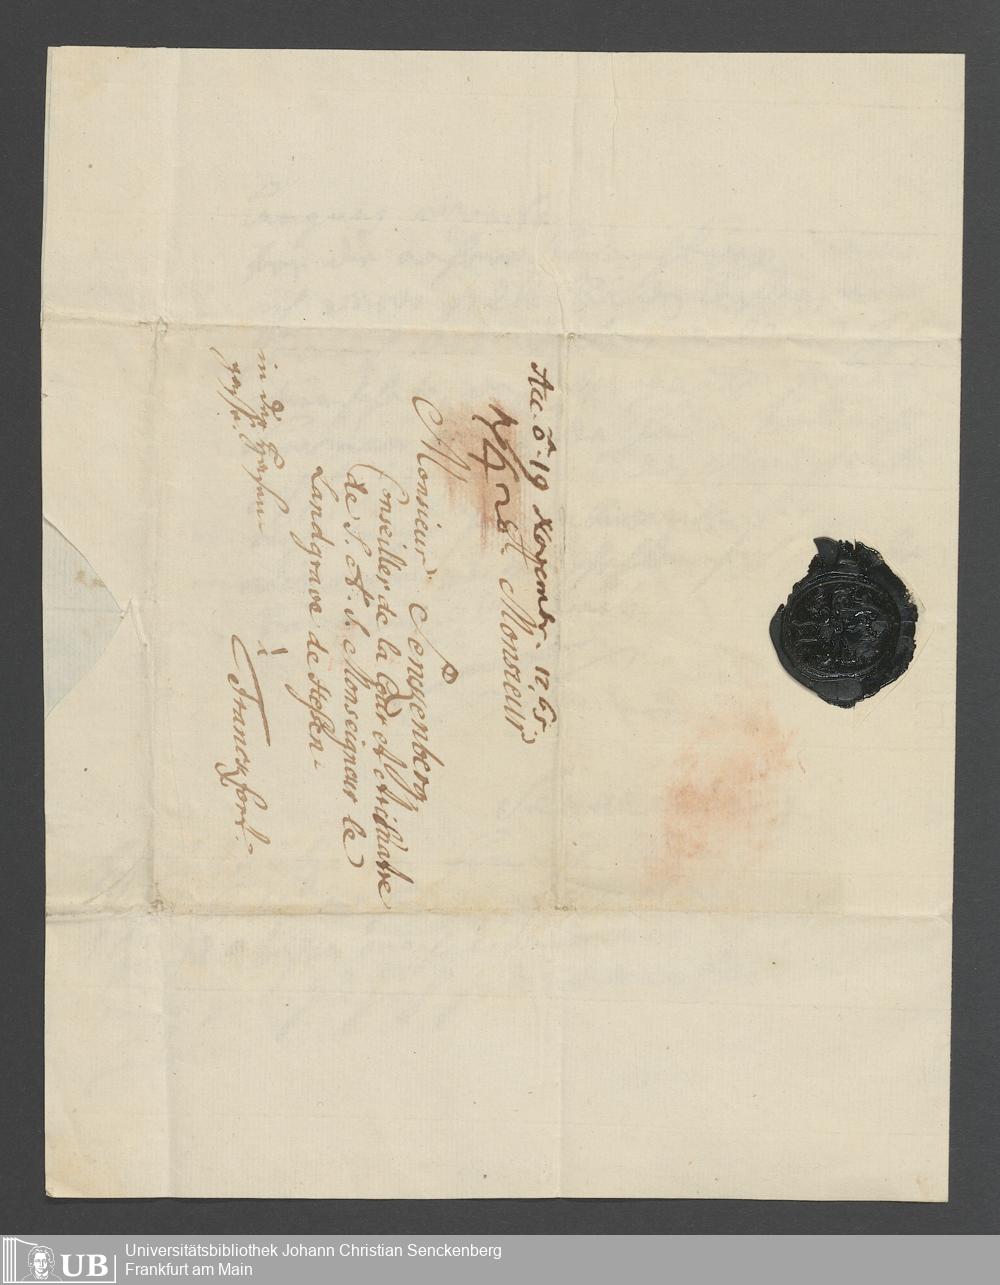 Acc. d. 19 Novembr. 1765.
A Monsieur
Monsieur Senckenberg
Conseiller de la Cour et Archiatre
de S. A. S. Monseigneur le
Landgrave de Heßen
à
Franckfort.
in der Hasen-
gasse.
Universitätsbibliothek Johann Christian Senckenberg
Frankfurt am Main
UB